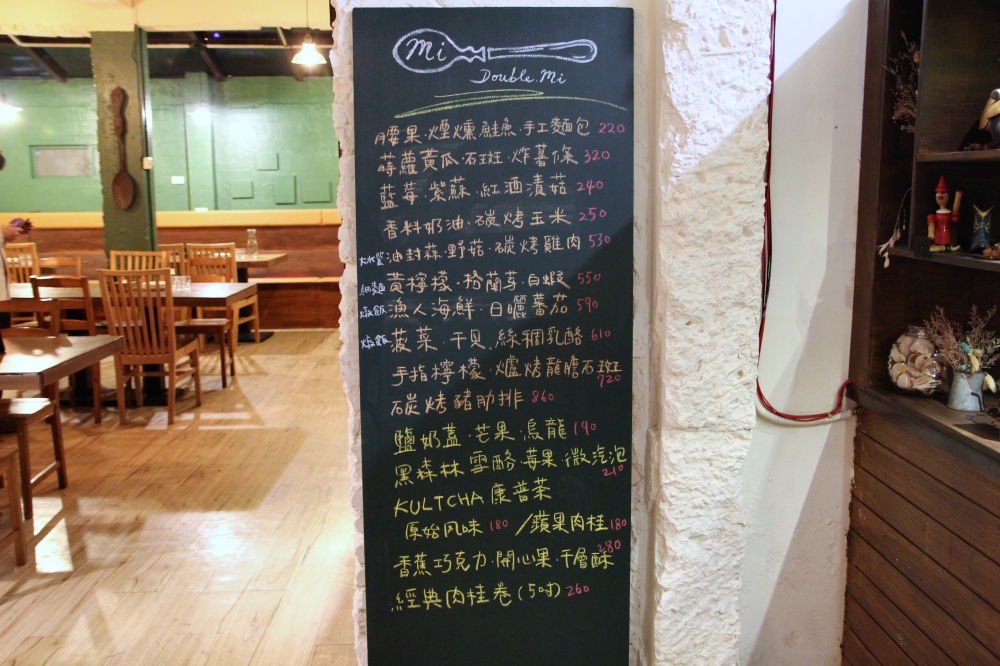 Mi
Double.Mi
腰果·煙燻鮭魚·手工麵包 220
蒔蘿黃瓜·石斑·炸薯條 320
藍莓·紫蘇·紅酒漬菇 240
香料奶油·碳烤玉米 250
大水管 油封蒜·野菇·碳烤雞肉 530
細麵 黃檸檬·格蘭芽·白蝦 550
燉飯 漁人海鮮·日曬蕃茄 590
燉飯 菠菜·干貝·絲稠乳酪 610
手指檸檬·爐烤龍膽石斑 720
碳烤豬肋排 860
鹽奶蓋·芒果·烏龍 190
黑森林雪酪·莓果·微汽泡 210
KULTCHA 康普茶
原始风味 180 /蘋果肉桂 180
香蕉巧克力·開心果·千層酥 280
經典肉桂卷(5吋) 260